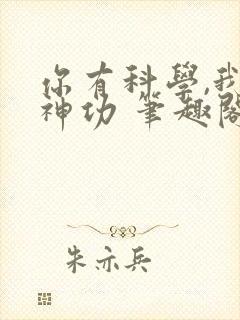 你有科學,我
神功 筆趣閣
朱亦兵